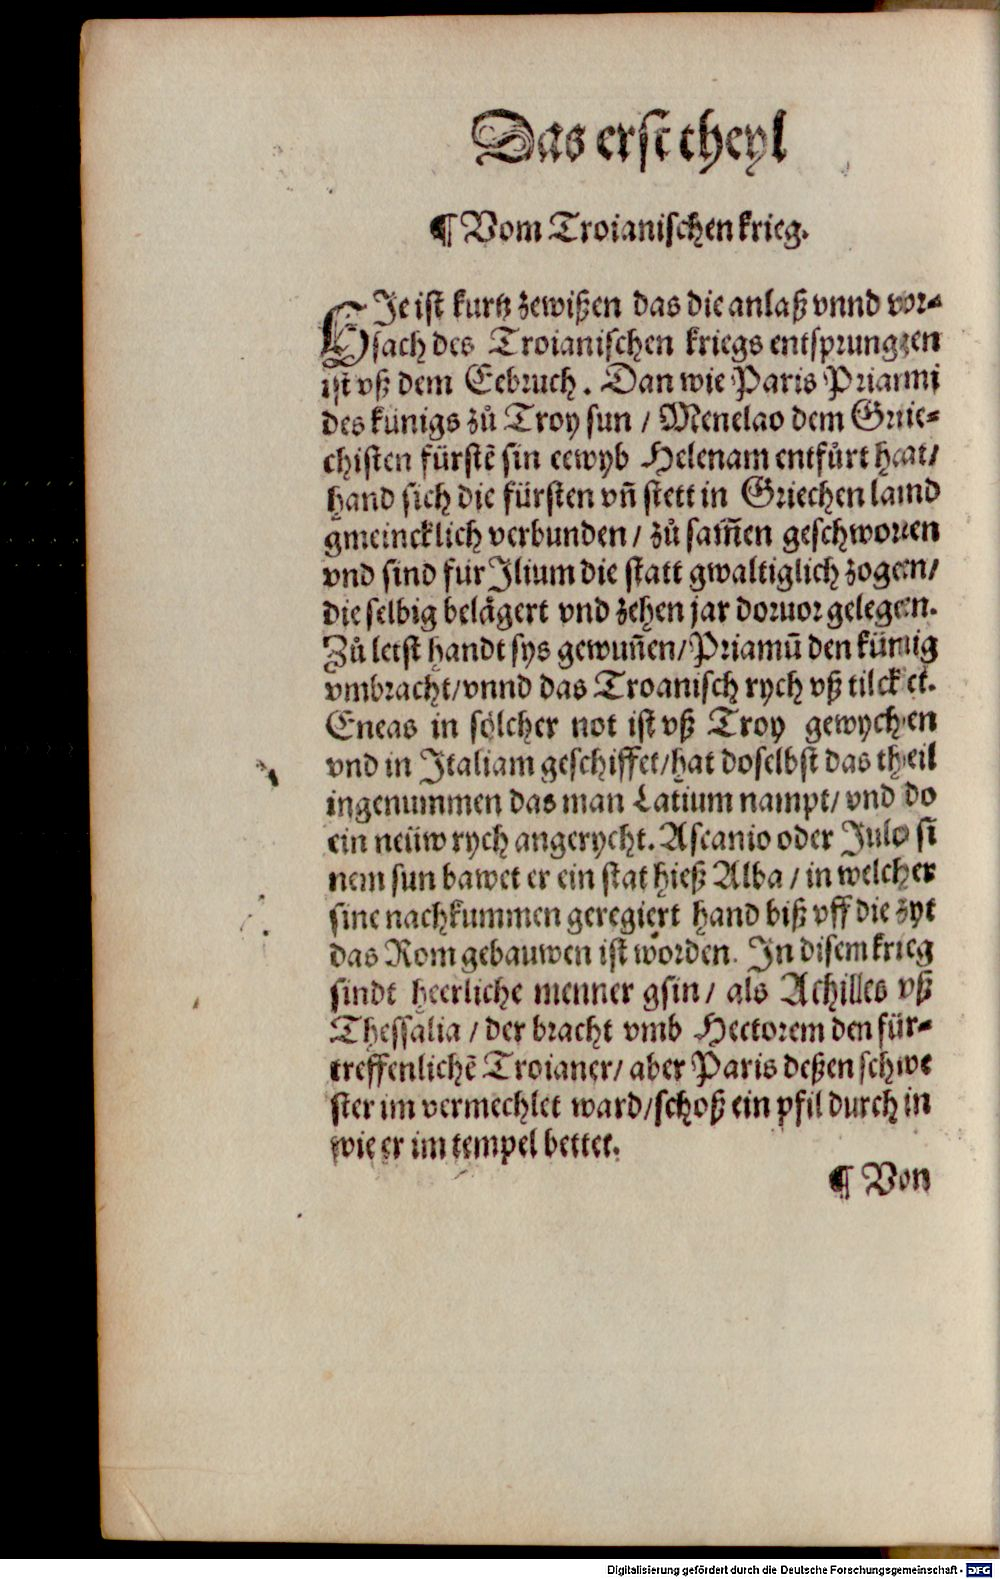 Das erst theyl
¶ Vom Troianischen krieg.
HIe ist kurtz zewißen das die anlaß vnnd vor⸗
sach des Troianischen kriegs entsprungen
ist vß dem Eebruch. Dan wie Paris Priami
des künigs zů Troy sun / Menelao dem Grie⸗
chisten fürstē sin eewyb Helenam entfůrt hat/
hand sich die fürsten vñ stett in Griechen land
gmeincklich verbunden / zů sam̄en geschworen
vnd sind für Ilium die statt gwaltiglich zogen/
die selbig belägert vnd zehen jar doruor gelegen.
Zů letst handt sys gewun̄en/Priamū den künig
vmbracht/vnnd das Troanisch rych vß tilcket.
Eneas in sölcher not ist vß Troy gewychen
vnd in Italiam geschiffet/hat doselbst das theil
ingenummen das man Latium nampt/ vnd do
ein neüw rych angerycht. Ascanio oder Julo si
nem sun bawet er ein stat hieß Alba / in welcher
sine nachkummen geregiert hand biß vff die zyt
das Rom gebauwen ist worden. In disem krieg
sindt heerliche menner gsin/ als Achilles vß
Thessalia / der bracht vmb Hectorem den für⸗
treffenlichē Troianer/ aber Paris deßen schwe
ster im vermechlet ward/schoß ein pfil durch in
wie er im tempel bettet.
¶ Von
Digitalisierung gefördert durch die Deutsche Forschungsgemeinschaft - DFG